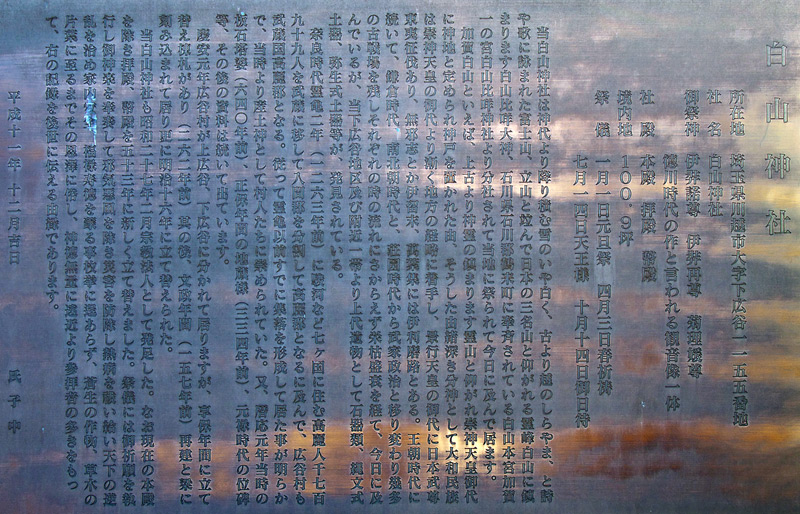 白山神社
所在地 埼玉県川越市大字下広谷一一五五番地
社名 白山神社
御祭神 伊弉諾尊 伊弉冉尊 菊理媛尊
徳川時代の作と言われる観音像一体
社殿 本殿 拝殿 幣殿
境内地 100.9坪
祭儀 一月一日元旦祭 四月三日春祈祷
七月一四日天王様 十月十四日御日待
当白山神社は神代より降り積む雪のいや白く、古より越のしらやま、と詩
や歌に詠まれた富士山、立山と並んで日本の三名山と仰がれる霊峰白山に鎮
まります白山比咩大神、石川県石川郡鶴来町に奉斉されている白山本宮加賀
一の宮白山比咩神社より分社されて当地に祭られて今日に及んで居ます。
加賀白山といえば、上古より神霊の鎮まります霊山と仰がれ崇神天皇御代
に神地と定められ神戸を置かれた由、そうした由緒深き分神として大和民族
は崇神天皇の御代より漸く地方の経略に着手し、景行天皇の御代に日本武尊
東夷征伐あり、無邪志とか伊弉末、萬葉集には伊利磨路とある。王朝時代に
続いて、鎌倉時代、南北朝時代と、荘園時代から武家政治と移り変わり幾多
の古戦場を残しそれぞれの時の流れにさからえず栄枯盛衰を経て、今日に及
んでいるが、当下広谷地区及び附近一帯より上代遺物として石器類、縄文式
土器、弥生式土器等が、発見されている。
奈良時代霊亀二年(一二六三年前)に駿河など七ヶ国に住む高麗人千七百
九十九人を武蔵に移して入間郡を分割して高麗郡となるに及んで、広谷村も
武蔵国高麗郡となる。従って霊亀以前すでに集落を形成して居た事が明らか
で、当時より産土神として村人たちに崇められていた。又、暦応元年当時の
板石塔婆(六四〇年前)正保年間の地蔵様(三三四年前)、元禄時代の位碑
等、その後の資料は続いて出ています。
慶安元年広谷村が上広谷、下広谷に分かれて居りますが、享保年間に立て
替え棟札があり(二六二年前)其の後、文政年間(一五七年前)再建と梁に
刻み込まれて居り更に明治十六年に立て替えられた。
当白山神社も昭和二十七年二月宗教法人として発足した。なお現在の本殿
を除き拝殿、幣殿を五十三年に新しく立て替えました。祭儀には御祈願を執
行し御神楽を奉奏して邪気悪魔を除き災害を防除し無病を願い給い天下の逆
乱を治め家内 福禄寿徳を蒙る事枚挙に遑あらず、蒼生の作物、草木の
片葉に至るまでその恩沢に浴し、神徳無量に遠近より参拝者の多きをもっ
て、右の記録を後世に伝える由縁であります。
平成十一年十二月吉日 氏子中